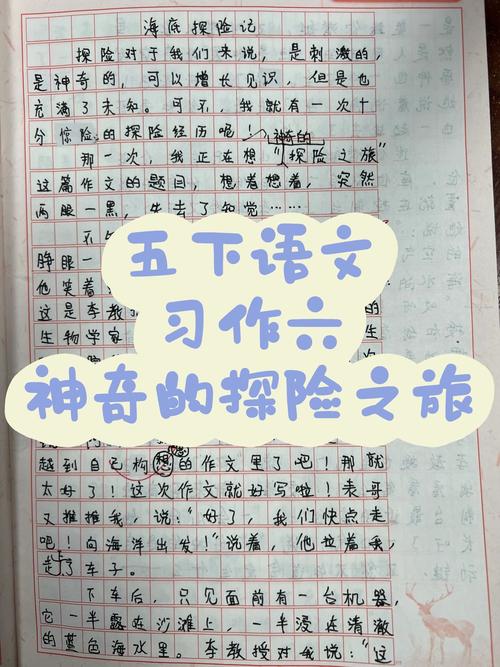 海底探险记
探险对于我们来说，是刺激的，
是神奇的，可以增长见识，但是也
充满了未知。可不，我就有一次十
分惊险的探险经历呢！
神奇的
那一次，我正在想“探险之旅”
这篇作文的题目，想着想着，突然
两眼一黑，失去了知觉……
五下语文
睁眼一
他笑着
这是李教
习作六
生物学家
神奇的探险之旅
越到自己构想的作文里了吧！那就
太好了！这次作文就好写啦！表哥
又推推我，说：“好了，我们快点走
吧！向海洋出发！”说着，他拉着我，
走上了车子。
下车后，只见面前有一台机器，
它一半露在沙滩上，一半浸在清澈
的蓝色海水里。李教授对我说：“这